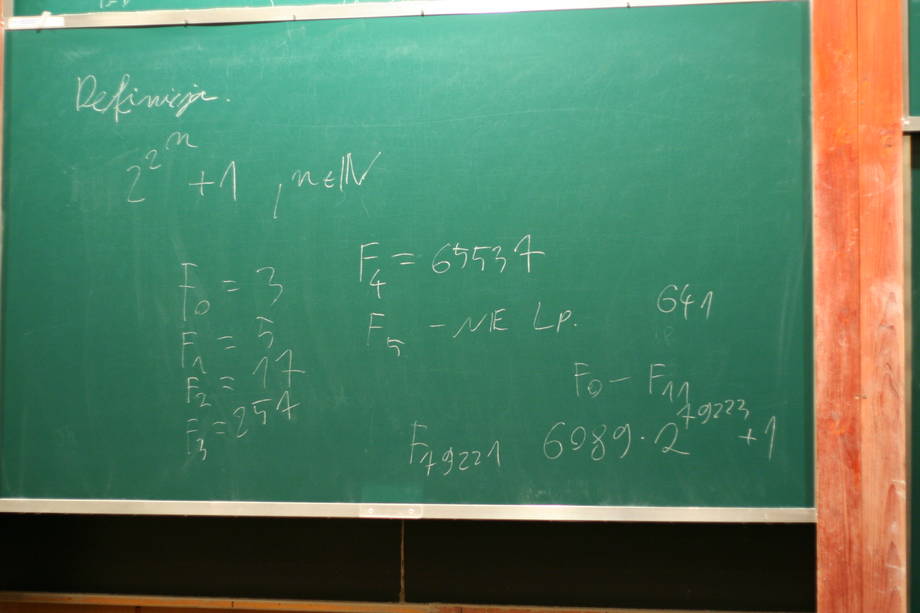 Definicja.
2^{2^n} + 1 , n ∈ ℕ
F_0 = 3
F_1 = 5
F_2 = 17
F_3 = 257
F_4 = 65537
F_5 – NIE L.p.
641
F_0 – F_11
F_79221 6089 · 2^{79223} + 1